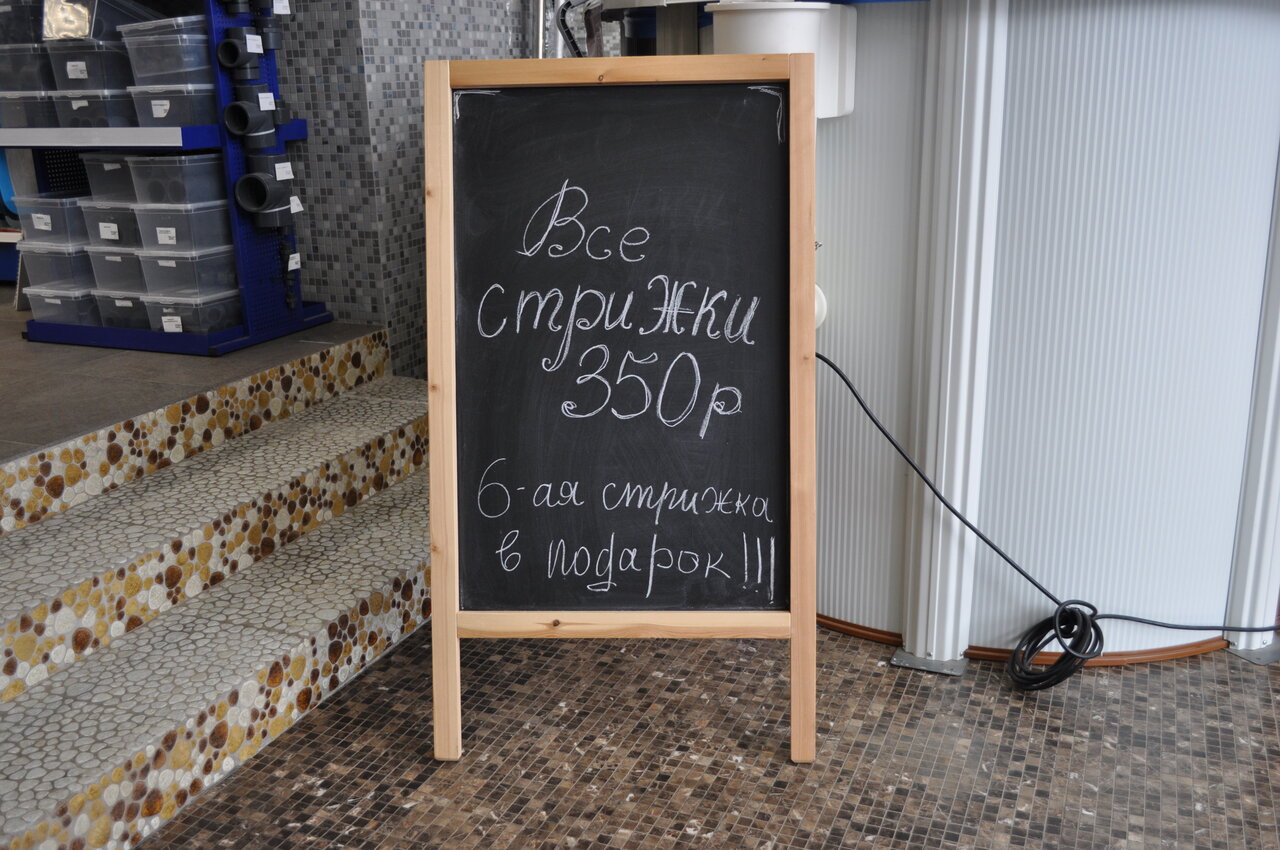 Все
стрижки
350р
6-ая стрижка
в подарок!!!